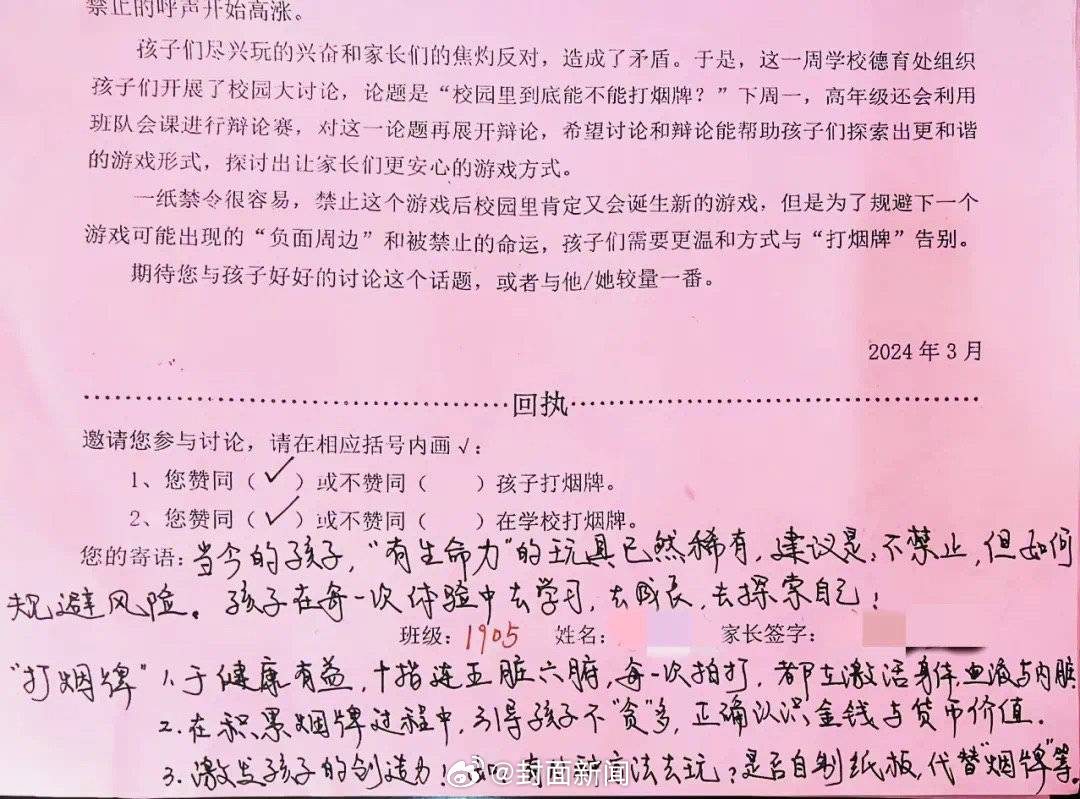 禁止的呼声开始高涨。
孩子们尽兴玩的兴奋和家长们的焦灼反对，造成了矛盾。于是，这一周学校德育处组织
孩子们开展了校园大讨论，论题是“校园里到底能不能打烟牌？”下周一，高年级还会利用
班队会课进行辩论赛，对这一论题再展开辩论，希望讨论和辩论能帮助孩子们探索出更和谐
的游戏形式，探讨出让家长们更安心的游戏方式。
一纸禁令很容易，禁止这个游戏后校园里肯定又会诞生新的游戏，但是为了规避下一个
游戏可能出现的“负面周边”和被禁止的命运，孩子们需要更温和方式与“打烟牌”告别。
期待您与孩子好好的讨论这个话题，或者与他/她较量一番。
2024年3月
回执
邀请您参与讨论，请在相应括号内画√：
1、您赞同（✓）或不赞同（ ）孩子打烟牌。
2、您赞同（✓）或不赞同（ ）在学校打烟牌。
您的寄语：当今的孩子，“有生命力”的玩具已然稀有，建议是：不禁止，但如何
规避风险。孩子在每一次体验中去学习，去成长，去探索自己！
班级：1905 姓名： 家长签字：
“打烟牌”1.于健康有益，十指连五脏六腑，每一次拍打，都在激活身体血液与内脏
2.在积累烟牌过程中，引导孩子不“贪”多，正确认识金钱与货币价值.
3.激发孩子的创造力！ 法去玩？是否自制纸板，代替“烟牌”等。
@封面新闻